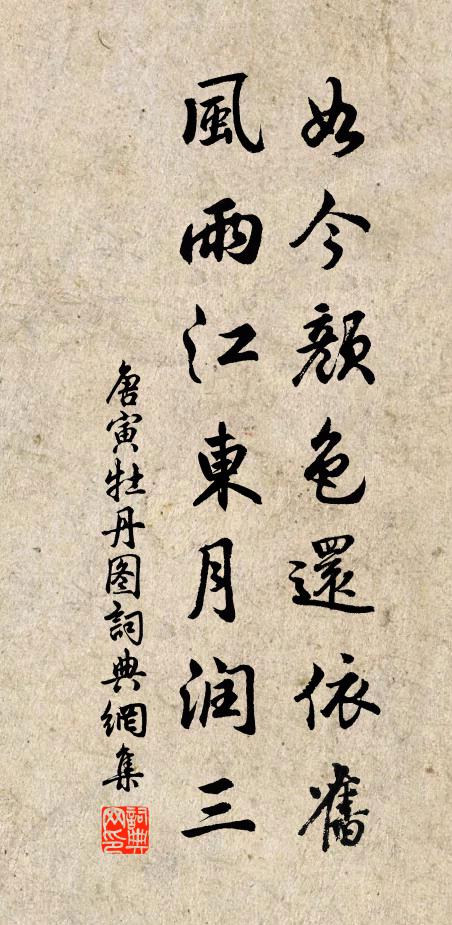 如今顏色還依舊
風雨江東月润三
唐寅牡丹图詞典網集
詞典
网印